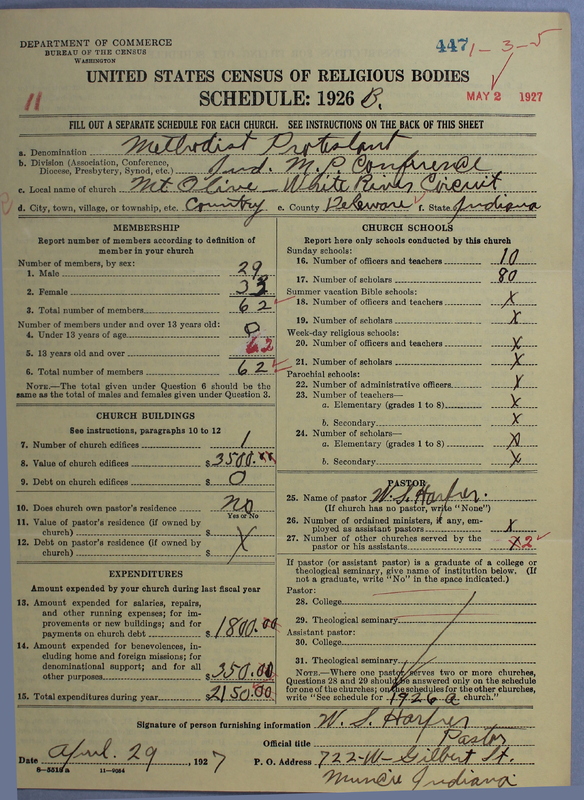 DEPARTMENT OF COMMERCE
BUREAU OF THE CENSUS
WASHINGTON
447 1-3-5
UNITED STATES CENSUS OF RELIGIOUS BODIES
SCHEDULE: 1926 B.
11
MAY 2 1927
FILL OUT A SEPARATE SCHEDULE FOR EACH CHURCH. SEE INSTRUCTIONS ON THE BACK OF THIS SHEET
a. Denomination Methodist Protestant
b. Division (Association, Conference, Diocese, Presbytery, Synod, etc.) Ind. M. P. Conference
c. Local name of church Mt Olive - White River Circuit
d. City, town, village, or township, etc. Country e. County Deleware f. State Indiana
MEMBERSHIP
Report number of members according to definition of
member in your church
Number of members, by sex:
1. Male 29
2. Female 33
3. Total number of members 62
Number of members under and over 13 years old:
4. Under 13 years of age 0
5. 13 years old and over 62
6. Total number of members 62
NOTE.—The total given under Question 6 should be
same as the total of males and females given under Question 3.
CHURCH BUILDINGS
See instructions, paragraphs 10 to 12
7. Number of church edifices 1
8. Value of church edifices $ 3500.00
9. Debt on church edifices $ 0
10. Does church own pastor's residence No
Yes or No
11. Value of pastor's residence (if owned by
church) $
12. Debt on pastor's residence (if owned by
church) $ X
EXPENDITURES
Amount expended by your church during last fiscal year
13. Amount expended for salaries, repairs,
and other running expenses; for im-
provements or new buildings; and for
payments on church debt $ 1800.00
14. Amount expended for benevolences, in-
cluding home and foreign missions; for
denominational support; and for all
other purposes $ 350.00
15. Total expenditures during year $ 2150.00
CHURCH SCHOOLS
Report here only schools conducted by this church
Sunday schools:
16. Number of officers and teachers 10
17. Number of scholars 80
Summer vacation Bible schools:
18. Number of officers and teachers X
19. Number of scholars X
Week-day religious schools:
20. Number of officers and teachers X
21. Number of scholars X
Parochial schools:
22. Number of administrative officers X
23. Number of teachers—
a. Elementary (grades 1 to 8) X
b. Secondary X
24. Number of scholars—
a. Elementary (grades 1 to 8) X
b. Secondary X
PASTOR
25. Name of pastor W. S. Harper.
(If church has no pastor, write "None")
26. Number of ordained ministers, if any, em-
ployed as assistant pastors X
27. Number of other churches served by the
pastor or his assistants X 2
If pastor (or assistant pastor) is a graduate of a college or
theological seminary, give name of institution below. (If
not a graduate, write "No" in the space indicated.)
Pastor:
28. College
29. Theological seminary
Assistant pastor:
30. College
31. Theological seminary
NOTE.—Where one pastor serves two or more churches,
Questions 28 and 29 should be answered only on the schedule
for one of the churches; on the schedules for the other churches,
write "See schedule for 1926 a church."
Signature of person furnishing information W. S. Harper
Official title Pastor
Date April. 29, 1927 P. O. Address 722-W- Gilbert St.
8-5518 a 11-9064 Muncie Indiana